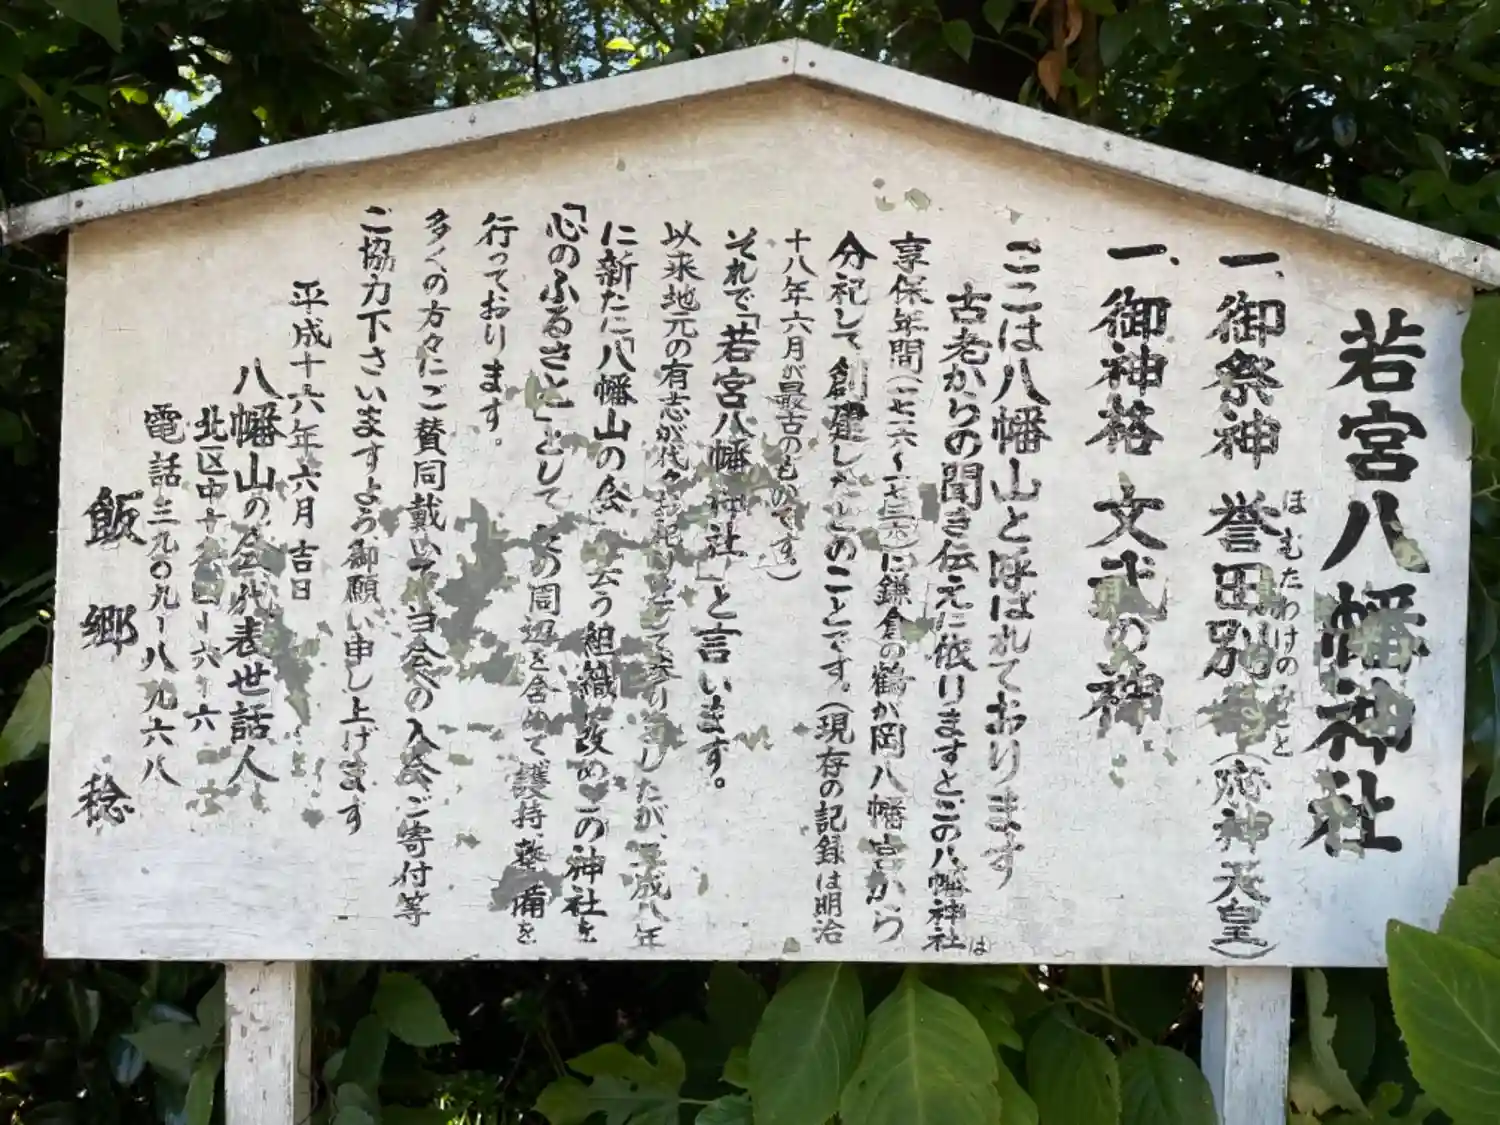 若宮八幡神社
一、御祭神 誉田別 (応神天皇)
ほむたわけの こと
一、御神格 文武の神
ここは八幡山と呼ばれております
古老からの聞き伝えに依りますとこの八幡神社は
享保年間(一七一六〜一七三六)に鎌倉の鶴が岡八幡宮から
分祀して創建したとのことです。(現存の記録は明治
十八年六月が最古のものです。)
それで「若宮八幡神社」と言います。
以来地元の有志が代々お祀りをして参りましたが、平成八年
に新たに「八幡山の会 云う組織 改め この神社を
「心のふるさと」として の周辺を含めて護持、整備を
行っております。
多くの方々にご賛同戴いて 会への入会、ご寄付等
ご協力下さいますよう御願い申し上げます
平成十六年六月吉日
八幡山の会代表世話人
北区中十条 ー六ー六
電話三九〇九ー八九六八
飯郷 稔